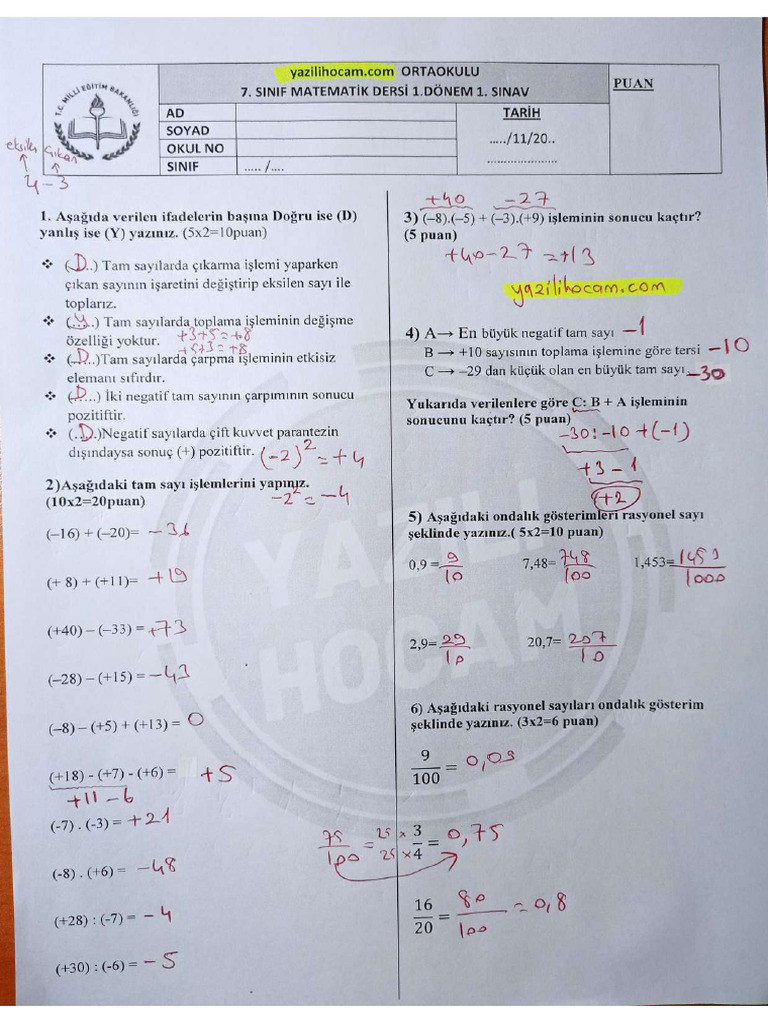 yazilihocam.com ORTAOKULU
7. SINIF MATEMATİK DERSİ 1.DÖNEM 1. SINAV
PUAN
T.C. MİLLİ EĞİTİM BAKANLIĞI
AD
SOYAD
OKUL NO
SINIF ..... /....
TARİH
...../11/20..
......................
eksilen çıkan
4 - 3
1. Aşağıda verilen ifadelerin başına Doğru ise (D)
yanlış ise (Y) yazınız. (5x2=10puan)
❖ (.D..) Tam sayılarda çıkarma işlemi yaparken
çıkan sayının işaretini değiştirip eksilen sayı ile
toplarız.
❖ (.Y..) Tam sayılarda toplama işleminin değişme
özelliği yoktur. +3+5=+8
+5+3=+8
❖ (..D..)Tam sayılarda çarpma işleminin etkisiz
elemanı sıfırdır.
❖ (..D...) İki negatif tam sayının çarpımının sonucu
pozitiftir.
❖ (..D.)Negatif sayılarda çift kuvvet parantezin
dışındaysa sonuç (+) pozitiftir. (-2)² = +4
-2² = -4
2)Aşağıdaki tam sayı işlemlerini yapınız.
(10x2=20puan)
(–16) + (–20)= -36
(+ 8) + (+11)= +19
(+40) – (–33) = +73
(–28) – (+15) = -43
(–8) – (+5) + (+13) = 0
(+18) - (+7) - (+6) = +5
+11 - 6
(-7) . (-3) = +21
(-8) . (+6) = -48
(+28) : (-7) = -4
(+30) : (-6) = -5
+40 -27
3) (–8).(–5) + (–3).(+9) işleminin sonucu kaçtır?
(5 puan)
+40-27=+13
yazilihocam.com
4) A→ En büyük negatif tam sayı -1
B → +10 sayısının toplama işlemine göre tersi -10
C → –29 dan küçük olan en büyük tam sayı -30
Yukarıda verilenlere göre C: B + A işleminin
sonucunu kaçtır? (5 puan)
-30:-10+(-1)
+3-1
+2
5) Aşağıdaki ondalık gösterimleri rasyonel sayı
şeklinde yazınız.( 5x2=10 puan)
0,9 = 9/10 7,48= 748/100 1,453= 1453/1000
2,9= 29/10 20,7= 207/10
6) Aşağıdaki rasyonel sayıları ondalık gösterim
şeklinde yazınız. (3x2=6 puan)
9/100 = 0,09
75/100 = 25 x 3/25 x 4 = 0,75
16/20 = 80/100 = 0,8
YAZILI
HOCAM